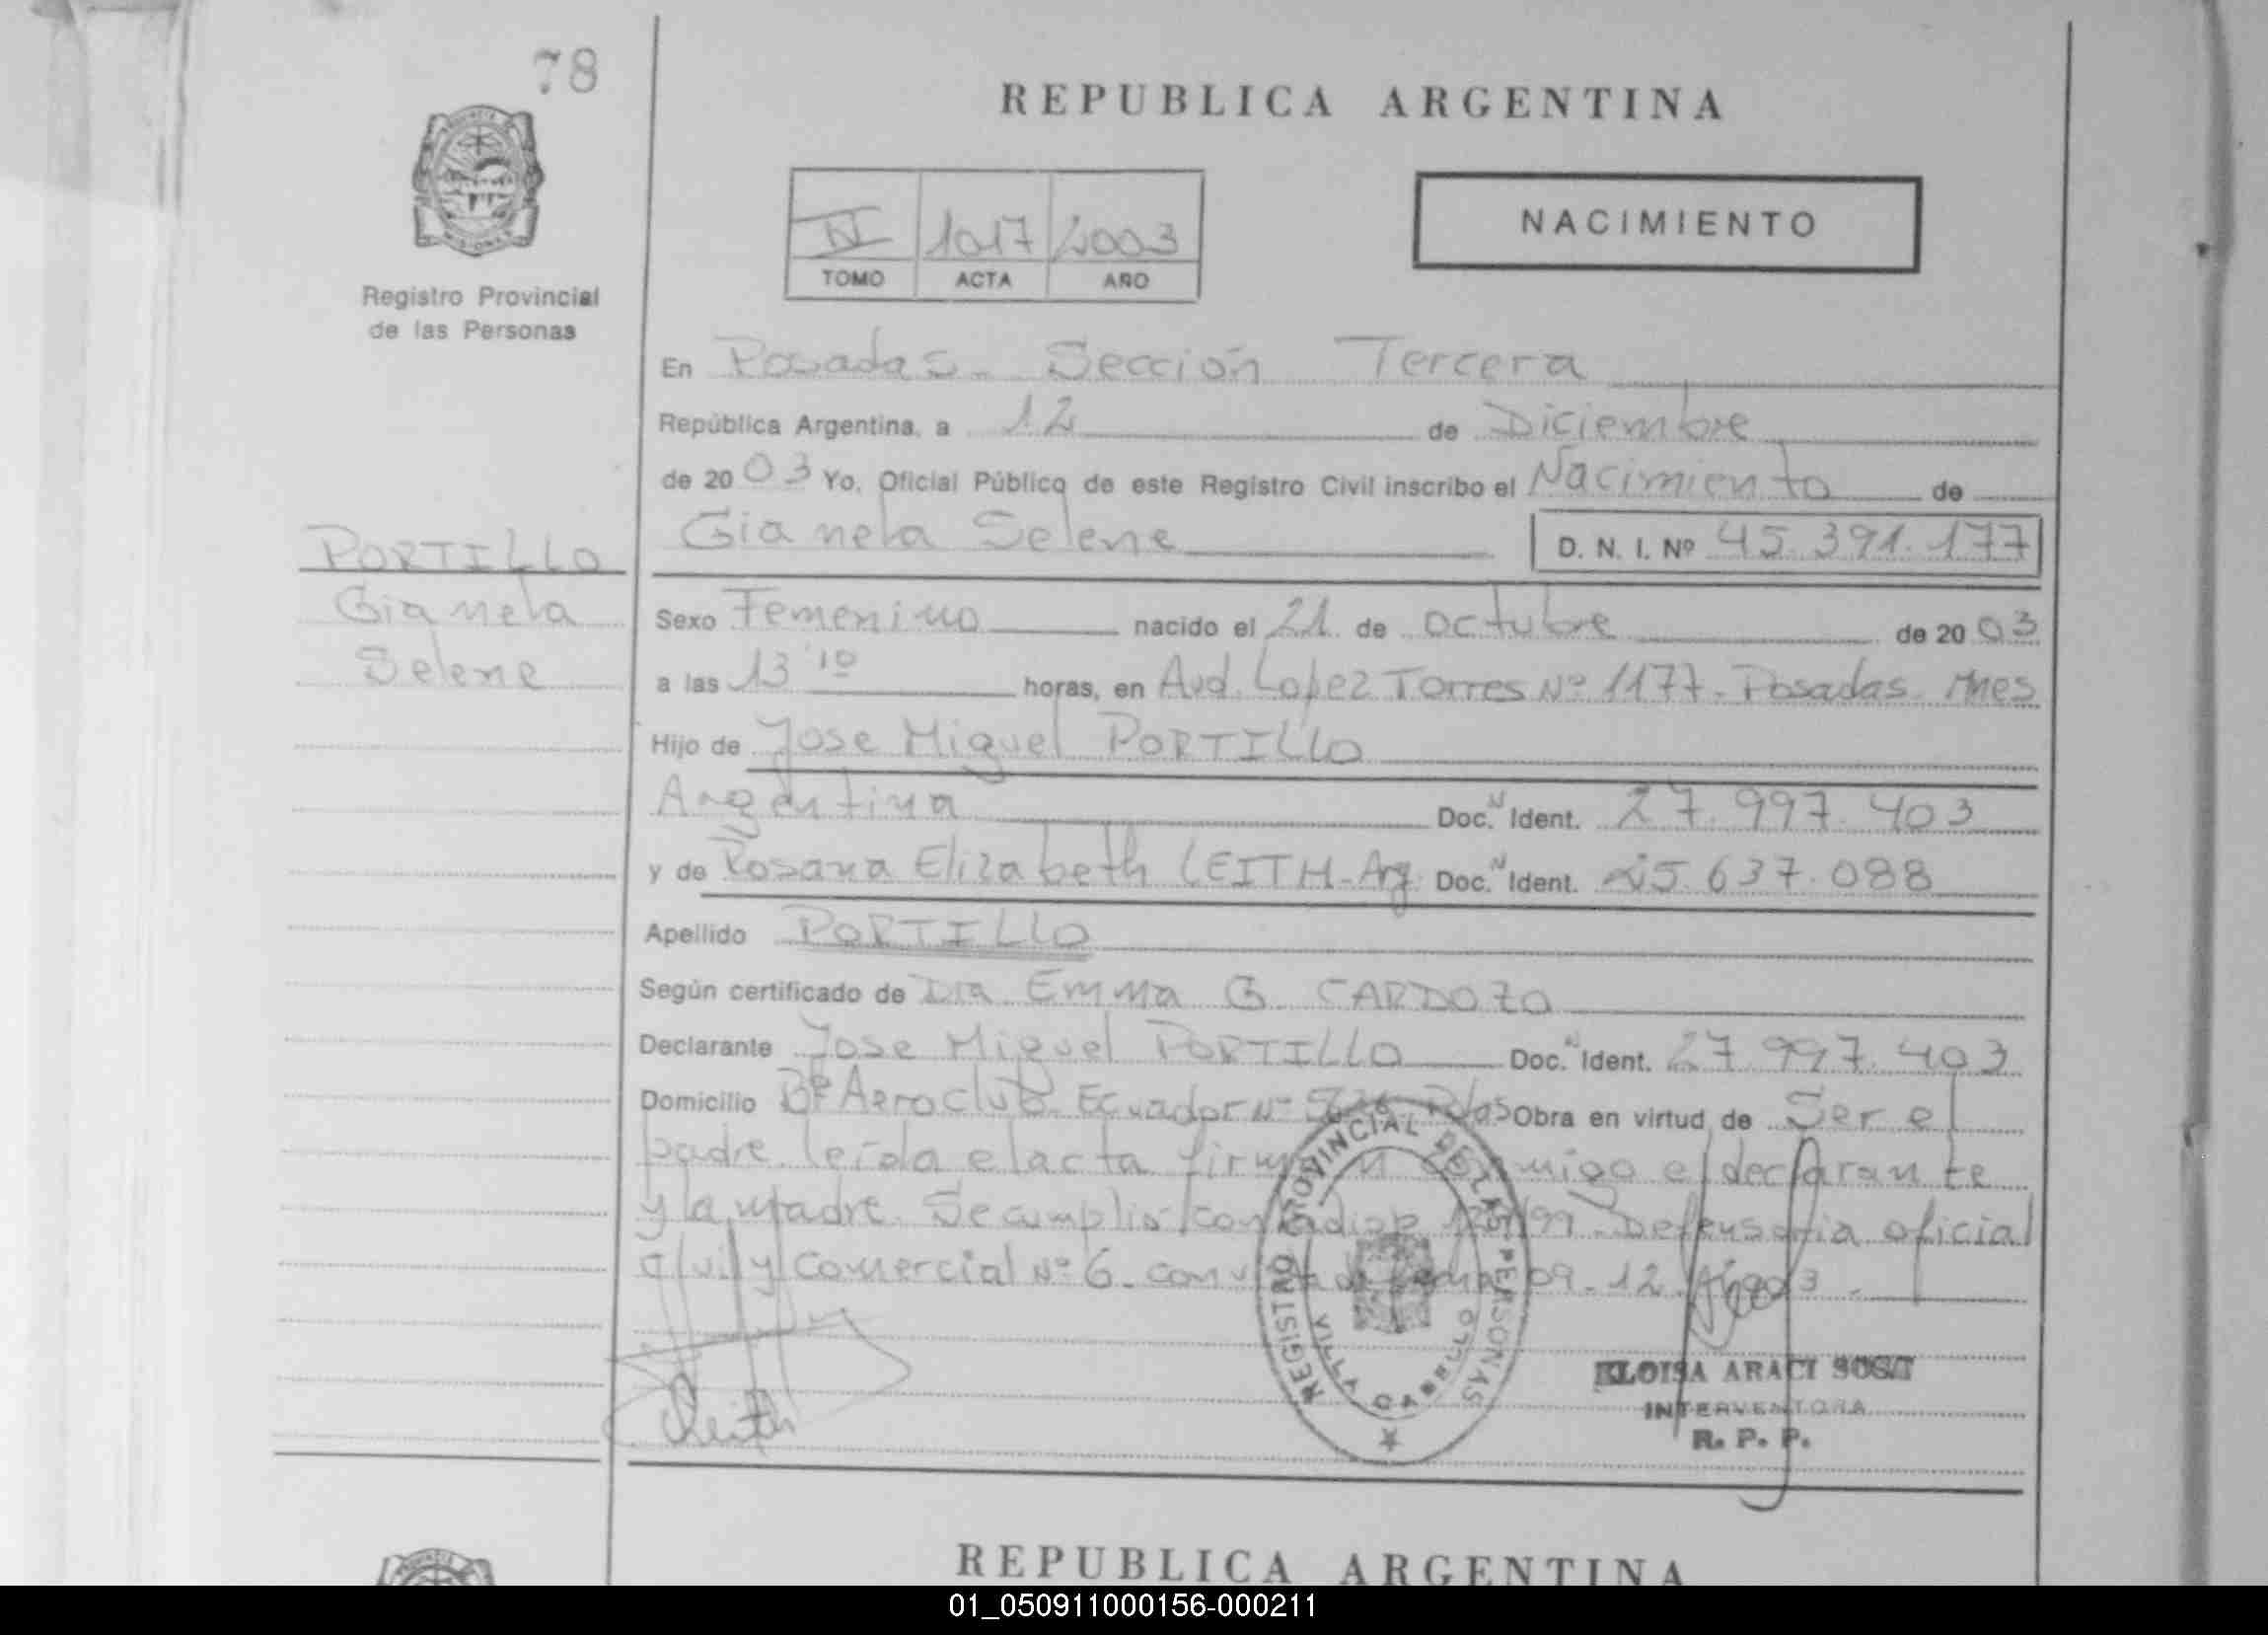 78
REPUBLICA ARGENTINA
IV 1017 2003
TOMO ACTA AÑO
NACIMIENTO
Registro Provincial
de las Personas
En Posadas - Sección Tercera
República Argentina, a 12 de Diciembre
de 2003 Yo, Oficial Público de este Registro Civil inscribo el Nacimiento de
Gianela Selene D. N. I. Nº 45.391.177
PORTILLO
Gianela
Selene
Sexo Femenino nacido el 21 de octubre de 2003
a las 13 10 horas, en Avd. Lopez Torres Nº 1177 - Posadas - Mnes
Hijo de Jose Miguel PORTILLO
Argentina Doc. N Ident. 27.997.403
y de Rosana Elizabeth LEITH - Arg Doc. N Ident. 25.637.088
Apellido PORTILLO
Según certificado de Dra Emma G. CARDOZO
Declarante Jose Miguel PORTILLO Doc. N Ident. 27.997.403
Domicilio Bº Aeroclub Ecuador Nº Pdas Obra en virtud de Ser el
padre. leída el acta firman conmigo el declarante
y la madre. Se cumplió con la /99 - Defensoria oficial
Civil y Comercial Nº 6 - con vista de fecha 09-12-2003 -
REGISTRO PROVINCIAL DE LAS PERSONAS
VILLA CABELLO
Leith
ELOISA ARACI SOSA
INTERVENTORA
R. P. P.
REPUBLICA ARGENTINA
01_050911000156-000211